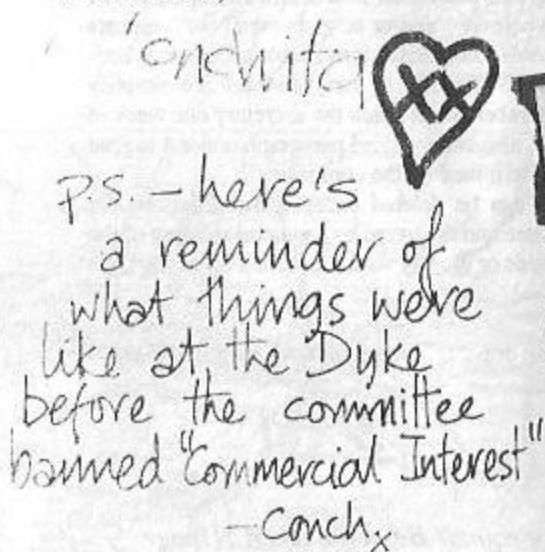 Conchita
XX
ps – here's
a reminder of
what things were
like at the Dyke
before the committee
banned "Commercial Interest"
– Conch x